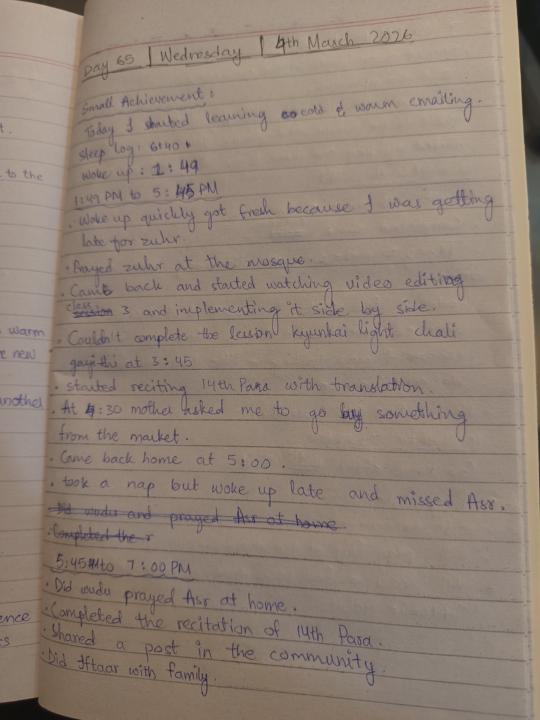 Day 65 | Wednesday | 4th March 2026
Small Achievement:
Today I started learning cold & warm emailing.
Sleep Log: 6:40
Woke up: 1:49
1:49 PM to 5:45 PM
. Woke up quickly got fresh because I was getting
late for zuhr.
. Prayed zuhr at the mosque.
. Came back and started watching video editing
class
session 3 and implementing it side by side.
. Couldn't complete the lession kyunkai light chali
gayi thi at 3:45
. started reciting 14th Para with translation.
. At 4:30 mother asked me to go buy something
from the market.
. Came back home at 5:00.
. took a nap but woke up late and missed Asr.
Did wudu and prayed Asr at home
. Completed the r
5:45 to 7:00 PM
. Did wudu prayed Asr at home.
. Completed the recitation of 14th Para.
. Shared a post in the community.
. Did Iftaar with family.
t.
to the
warm
new
another
ence
s